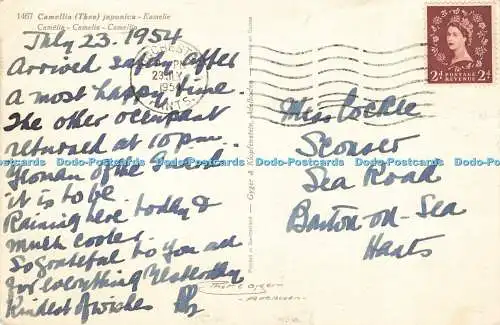 1467 Camellia (Thea) japonica - Kamelie
Camélia - Camelia - Camellia
July 23. 1954
Arrived safely after
a most happy time.
The other occupant
returned at 10 pm
of the
it is to be.
Raining here today &
much cooler
So grateful to you all
for everything yesterday
Kindest of wishes
CHESTER
PM
23 JLY
1954
HANTS
2d POSTAGE REVENUE 2d
Printed in Switzerland
Gyger & Klopfenstein, Adelboden
Miss Cockle
Sconser
Sea Road
Barton-on-Sea
Hants
Dodo-Postcards Dodo-Postcards Dodo-Postcards Dodo-Postcards Dodo-Postcards